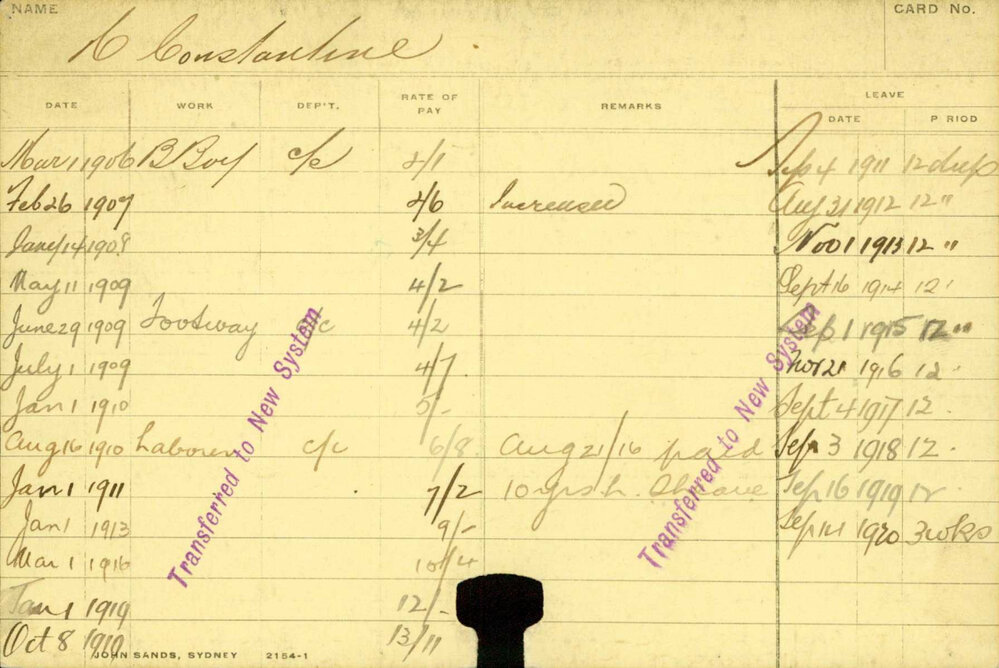 NAME
CARD No.
A Constantine
DATE WORK DEP'T. RATE OF PAY REMARKS LEAVE
DATE P RIOD
Mar 1 1906 B Boy c/c 2/1 Sep 4 1911 12 days
Feb 26 1907 2/6 Increased Aug 31 1912 12 "
Jany 14 1908 3/4 Nov 1 1913 12 "
May 11 1909 4/2 Sept 16 1914 12 '
June 29 1909 Footway c/c 4/2 Sep 1 1915 12 "
July 1 1909 4/7 Nov 21 1916 12 '
Jan 1 1910 5/- Sept 4 1917 12 .
Aug 16 1910 Laborer c/c 6/8 Aug 21/16 paid Sep 3 1918 12 .
Jan 1 1911 7/2 10 yrs Sep 16 1919 12
Jan 1 1913 9/- Sep 1920 3 wks
Mar 1 1916 10/4
Jan 1 1919 12/-
Oct 8 1919 13/11
Transferred to New System
Transferred to New System
JOHN SANDS, SYDNEY 2154-1